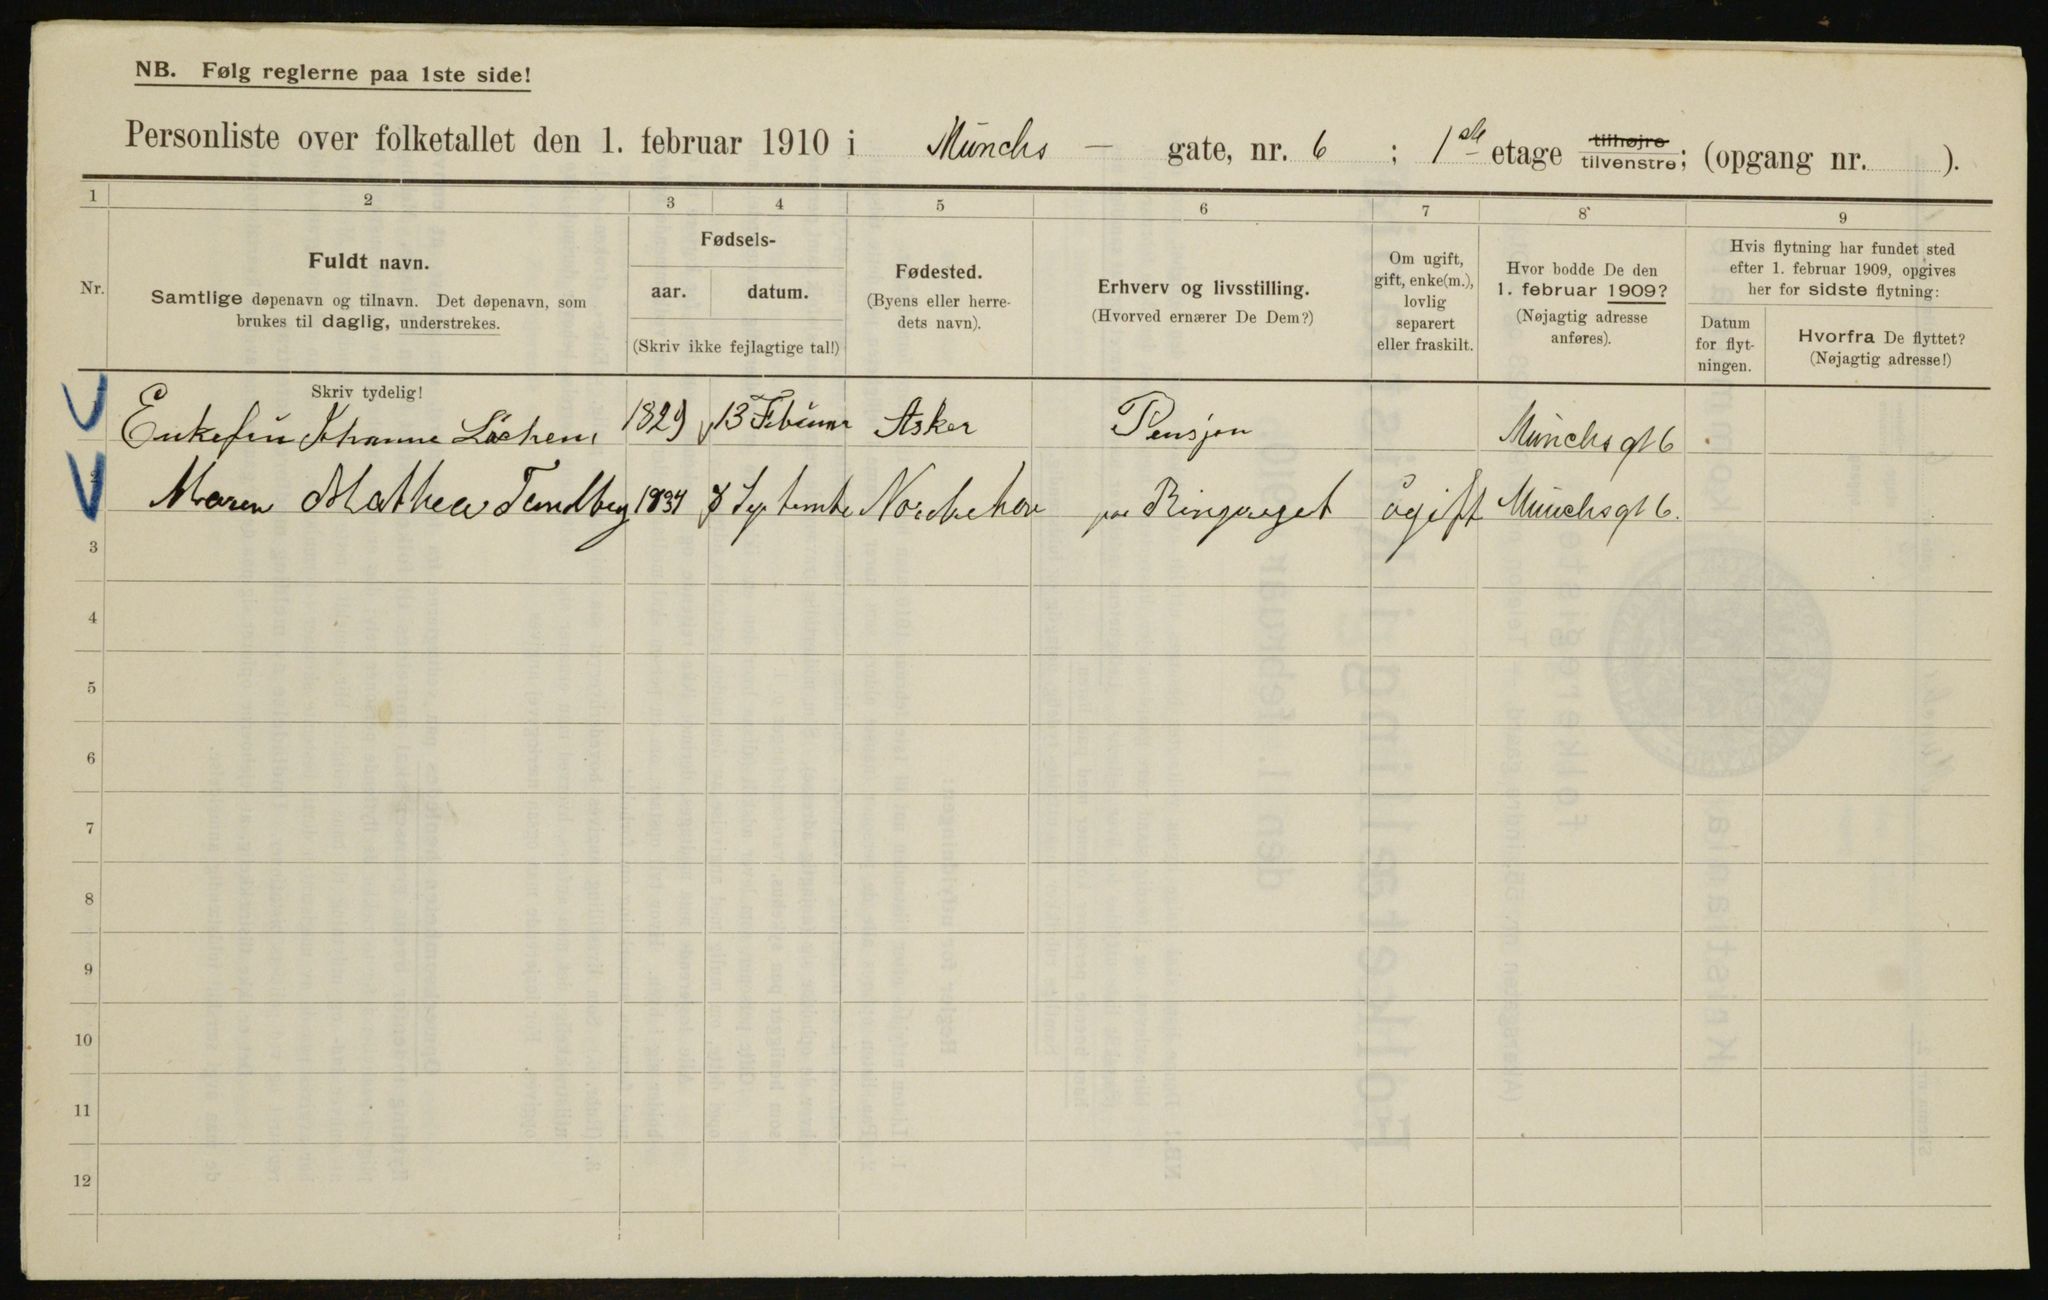 NB. Følg reglerne paa 1ste side!
Personliste over folketallet den 1. februar 1910 i Münchs — gate, nr. 6 ; 1ste etage tilhøjre tilvenstre; (opgang nr. ).
1 2 3 4 5 6 7 8 9
Nr.
Fuldt navn.
Samtlige døpenavn og tilnavn. Det døpenavn, som
brukes til daglig, understrekes.
Fødsels-
aar. datum.
(Skriv ikke fejlagtige tal!)
Fødested.
(Byens eller herre-
dets navn).
Erhverv og livsstilling.
(Hvorved ernærer De Dem?)
Om ugift,
gift, enke(m.),
lovlig
separert
eller fraskilt.
Hvor bodde De den
1. februar 1909?
(Nøjagtig adresse
anføres).
Hvis flytning har fundet sted
efter 1. februar 1909, opgives
her for sidste flytning:
Datum
for flyt-
ningen.
Hvorfra De flyttet?
(Nøjagtig adresse!)
Skriv tydelig!
Enkefru Johanne 1829 13 Februar Asker Pensjon Münchs gt 6
Maren Mathea Tandberg 1834 8 September Norderhov paa Ringeriget ugift Münchs gt 6.
3
4
5
6
7
8
9
10
11
12